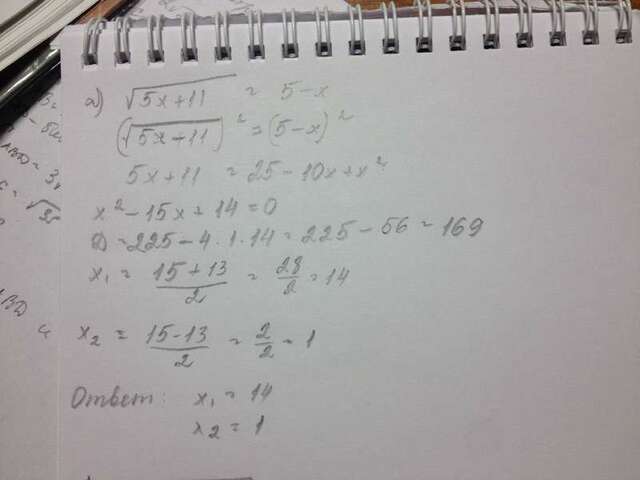 а) √5x+11 = 5-x
(√5x+11)² = (5-x)²
5x+11 = 25-10x+x²
x²-15x+14=0
D=225-4·1·14=225-56=169
x₁ = 15+13/2 = 28/2 = 14
x₂ = 15-13/2 = 2/2 = 1
Ответ: x₁ = 14
x₂ = 1